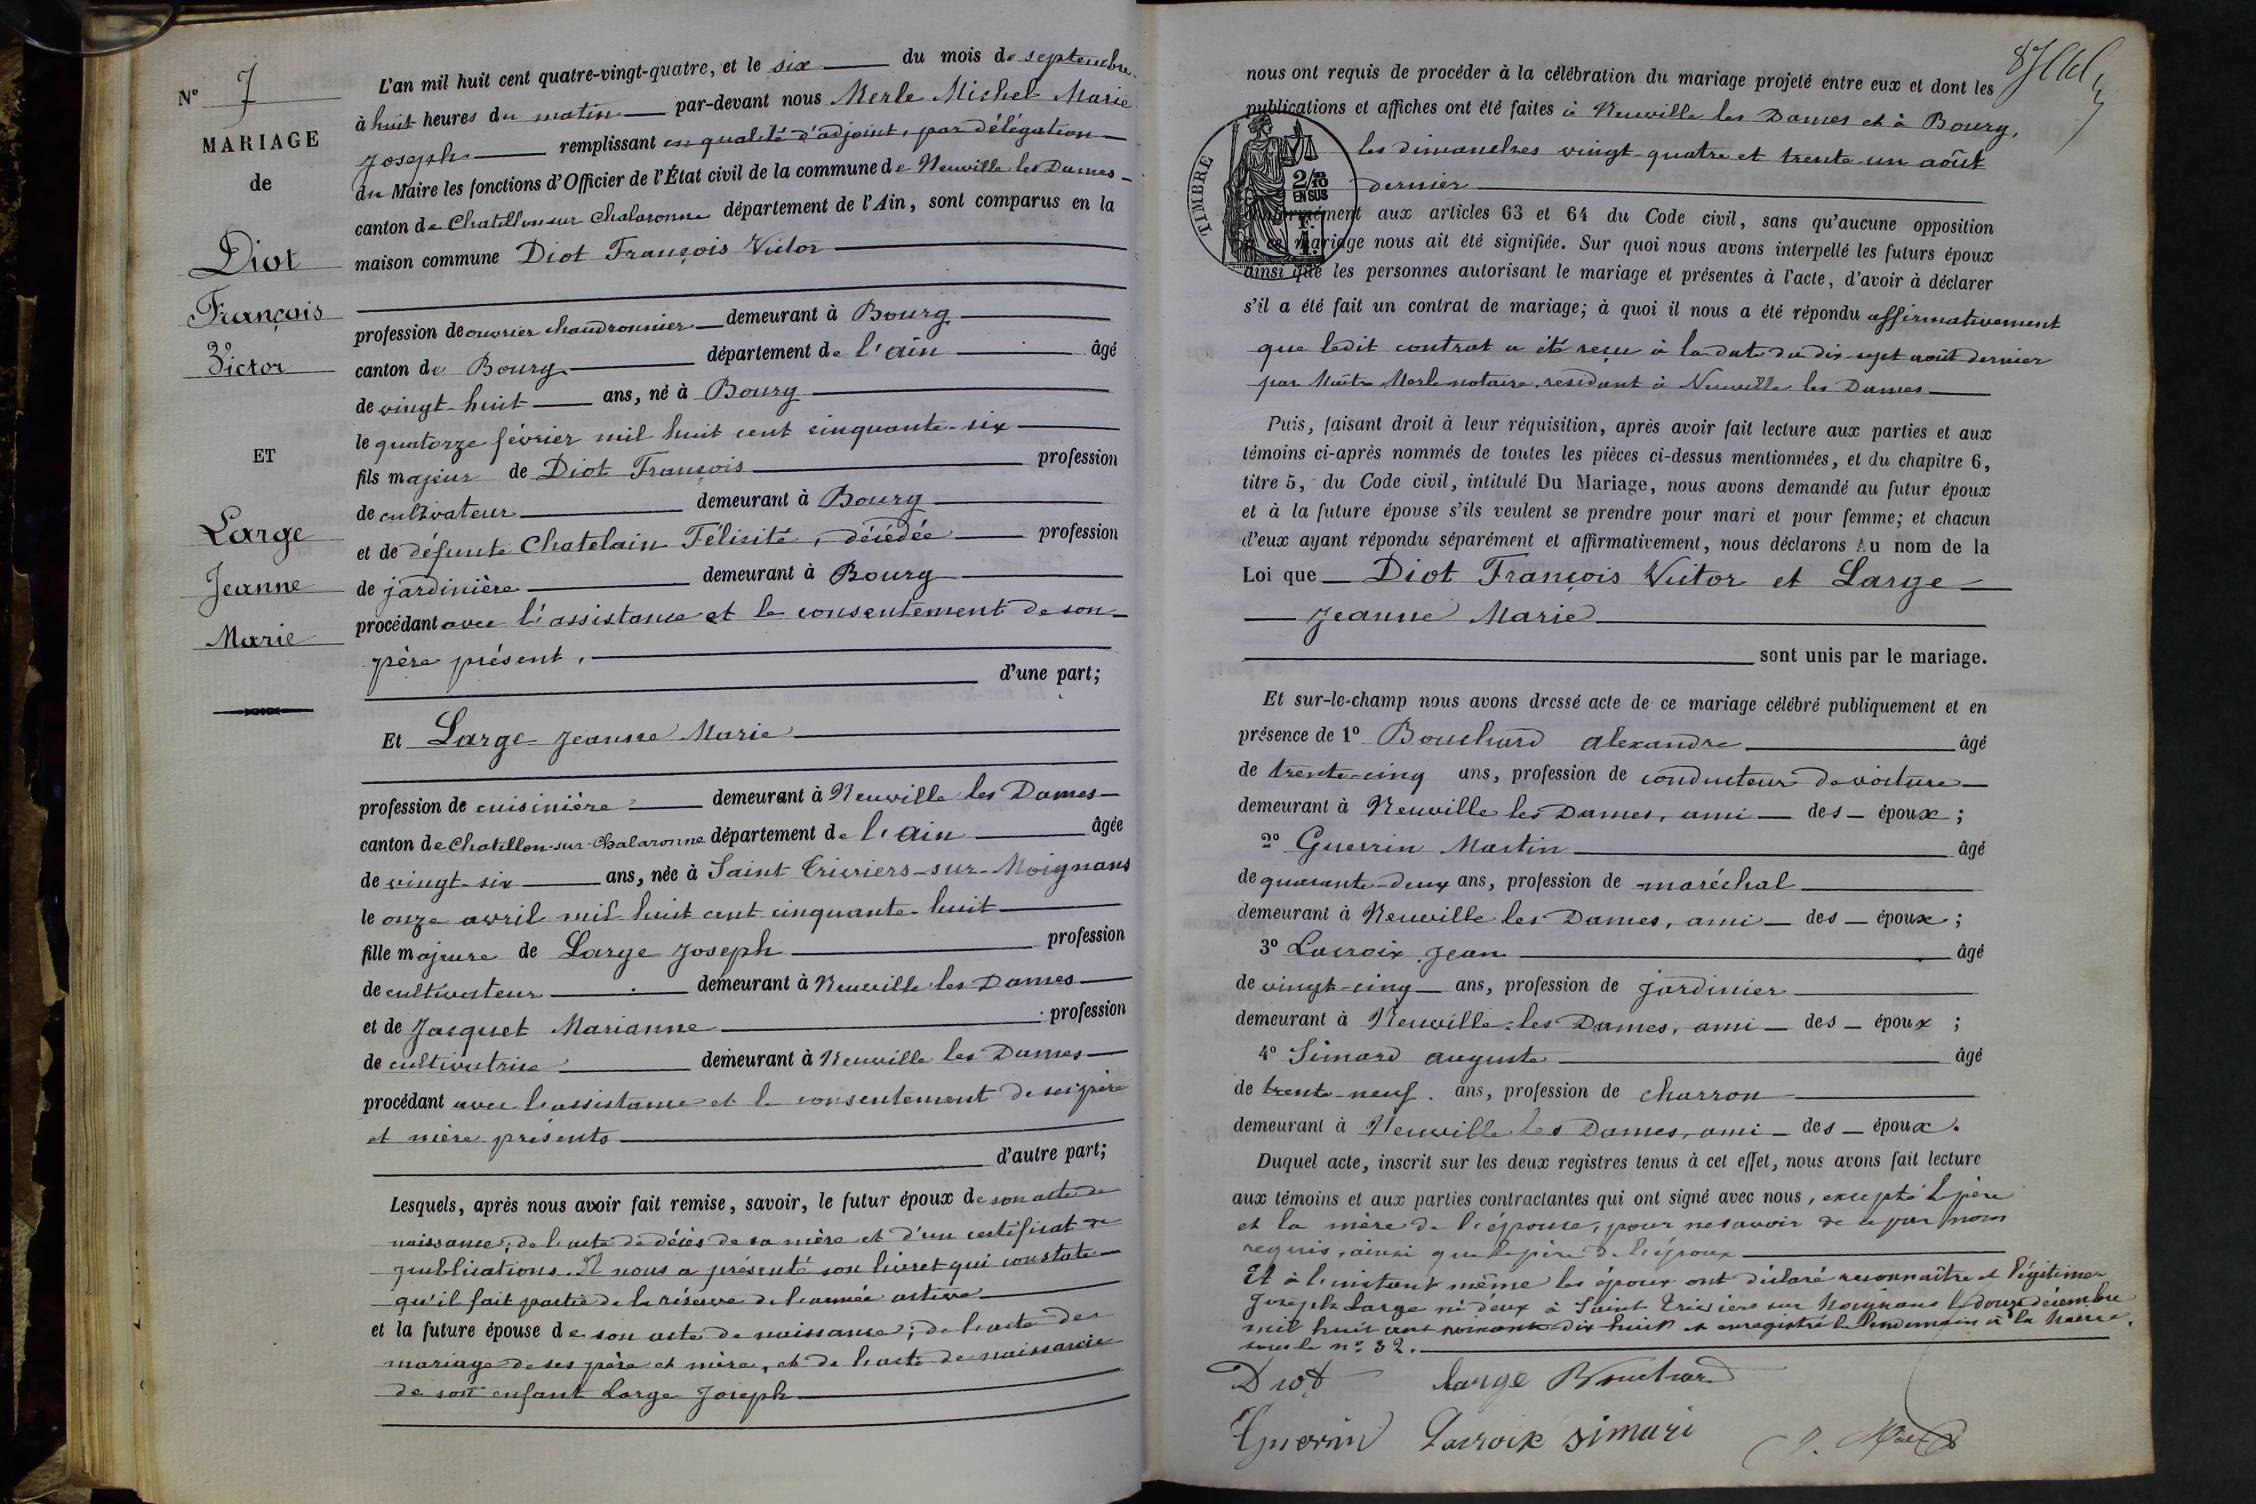 N° 7
MARIAGE
de
Diot
François
Victor
ET
Large
Jeanne
Marie
L'an mil huit cent quatre-vingt-quatre, et le six du mois de septembre
à huit heures du matin par-devant nous Merle Michel Marie
Joseph remplissant en qualité d'adjoint, par délégation
du Maire les fonctions d'Officier de l'État civil de la commune de Neuville les Dames
canton de Chatillon sur Chalaronne département de l'Ain, sont comparus en la
maison commune Diot François Victor
profession de ouvrier chaudronnier demeurant à Bourg
canton de Bourg département de l'ain âgé
de vingt-huit ans, né à Bourg
le quatorze février mil huit cent cinquante-six
fils majeur de Diot François profession
de cultivateur demeurant à Bourg
et de défunte Chatelain Félisité, décédée profession
de jardinière demeurant à Bourg
procédant avec l'assistance et le consentement de son
père présent,
d'une part;
Et Large Jeanne Marie
profession de cuisinière demeurant à Neuville les Dames
canton de Chatillon-sur-Chalaronne département de l'ain âgée
de vingt-six ans, née à Saint Triviers-sur-Moignans
le onze avril mil huit cent cinquante-huit
fille majeure de Large Joseph profession
de cultivateur demeurant à Neuville les Dames
et de Jacquet Marianne profession
de cultivatrice demeurant à Neuville les Dames
procédant avec l'assistance et le consentement de ses père
et mère présents
d'autre part;
Lesquels, après nous avoir fait remise, savoir, le futur époux de son acte de
naissance, de l'acte de décès de sa mère et d'un certificat de
publications. Il nous a présenté son livret qui constate
qu'il fait partie de la réserve de l'armée active
et la future épouse de son acte de naissance; de l'acte de
mariage de ses père et mère, et de l'acte de naissance
de son enfant Large Joseph
nous ont requis de procéder à la célébration du mariage projeté entre eux et dont les
publications et affiches ont été faites à Neuville les Dames et à Bourg,
les dimanches vingt-quatre et trente-un août
dernier
TIMBRE
2/10
EN SUS
F.
1.
conformément aux articles 63 et 64 du Code civil, sans qu'aucune opposition
à ce mariage nous ait été signifiée. Sur quoi nous avons interpellé les futurs époux
ainsi que les personnes autorisant le mariage et présentes à l'acte, d'avoir à déclarer
s'il a été fait un contrat de mariage; à quoi il nous a été répondu affirmativement
que ledit contrat a été reçu à la date du dix-sept août dernier
par Maître Merle notaire, résidant à Neuville les Dames
Puis, faisant droit à leur réquisition, après avoir fait lecture aux parties et aux
témoins ci-après nommés de toutes les pièces ci-dessus mentionnées, et du chapitre 6,
titre 5, du Code civil, intitulé Du Mariage, nous avons demandé au futur époux
et à la future épouse s'ils veulent se prendre pour mari et pour femme; et chacun
d'eux ayant répondu séparément et affirmativement, nous déclarons Au nom de la
Loi que Diot François Victor et Large
Jeanne Marie
sont unis par le mariage.
Et sur-le-champ nous avons dressé acte de ce mariage célébré publiquement et en
présence de 1° Bouchard alexandre âgé
de trente-cinq ans, profession de conducteur de voiture
demeurant à Neuville les Dames, ami des époux;
2° Guerrin Martin âgé
de quarante-deux ans, profession de maréchal
demeurant à Neuville les Dames, ami des époux;
3° Lacroix Jean âgé
de vingt-cinq ans, profession de jardinier
demeurant à Neuville les Dames, ami des époux;
4° Simard auguste âgé
de trente-neuf ans, profession de charron
demeurant à Neuville les Dames, ami des époux.
Duquel acte, inscrit sur les deux registres tenus à cet effet, nous avons fait lecture
aux témoins et aux parties contractantes qui ont signé avec nous, excepté le père
et la mère de l'épouse, pour ne savoir de ce par nous
requis, ainsi que le père de l'époux
Et à l'instant même les époux ont déclaré reconnaître et légitimer
Joseph Large né d'eux à Saint Triviers sur Moignans le douze décembre
mil huit cent soixante-dix-huit et enregistré le lendemain à la Mairie,
sous le n° 32.
Diot Large Bouchard
Guerrin Lacroix Simard